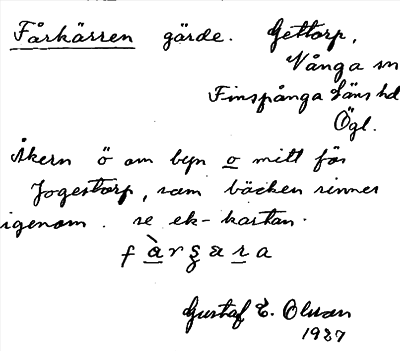 Fårkärren gärde. Gettorp,
Vånga sn
Finspånga läns hd
Ögl.
Åkern ö om byn o mitt för
Jogestorp, som bäcken rinner
igenom. se ek-kartan.
Gustaf E. Olsson
1927